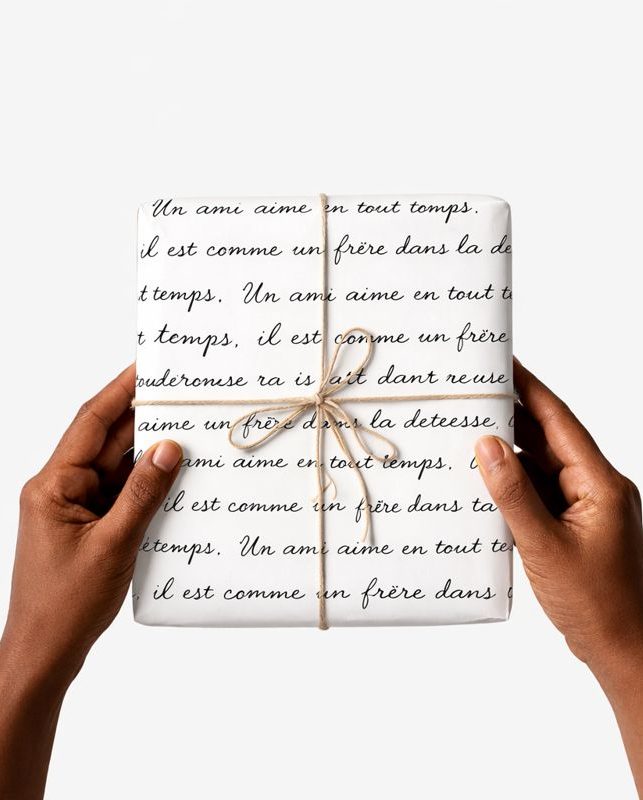 Un ami aime en tout tomps.
il est comme un frëre dans la de
t temps. Un ami aime en tout t
t temps, il est comme un frëre
ouderonise ra is a't dant reuse
aime un frëre dans la deteesse,
ami aime en tout temps.
il est comme un frëre dans ta
étemps. Un ami aime en tout te
, il est comme un frëre dans